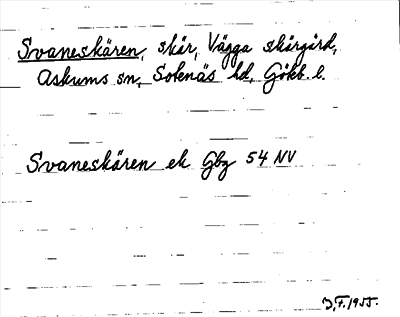 Svaneskären, skär, Vägga skärgård,
Askums sn, Sotenäs hd, Gökb. l.
Svaneskären ek Gbg 54 NV
D.F. 1955.